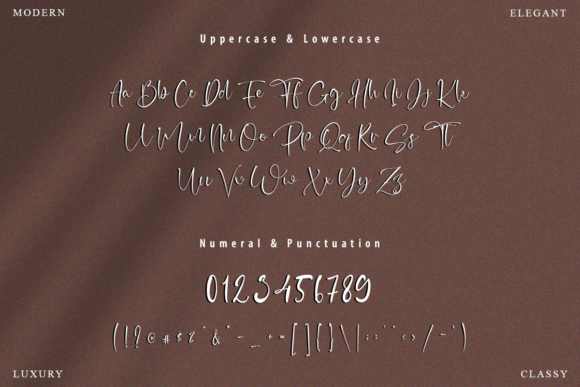 MODERN
ELEGANT
Uppercase & Lowercase
Aa Bb Cc Dd Ee Ff Gg Hh Ii Jj Kk
Ll Mm Nn Oo Pp Qq Rr Ss Tt
Uu Vv Ww Xx Yy Zz
Numeral & Punctuation
0123456789
LUXURY
CLASSY